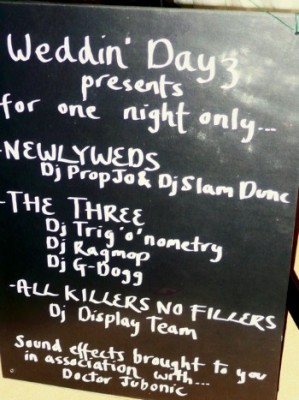 Weddin' Dayz
presents
for one night only...
-NEWLYWEDS
Dj PropJo & Dj Slam Dunc
-THE THREE
Dj Trig'o'nometry
Dj Ragmop
Dj G-Dogg
-ALL KILLERS NO FILLERS
Dj Display Team
Sound effects brought to you
in association with...
Doctor Jubonic